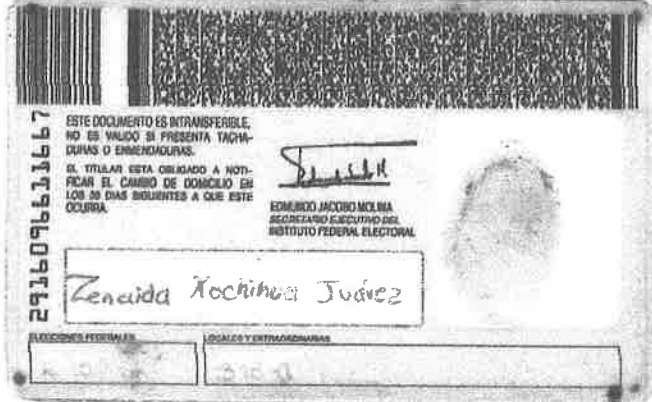 2916096611667
ESTE DOCUMENTO ES INTRANSFERIBLE,
NO ES VALIDO SI PRESENTA TACHA-
DURAS O ENMENDADURAS.
EL TITULAR ESTA OBLIGADO A NOTI-
FICAR EL CAMBIO DE DOMICILIO EN
LOS 30 DIAS SIGUIENTES A QUE ESTE
OCURRA.
EDMUNDO JACOBO MOLINA
SECRETARIO EJECUTIVO DEL
INSTITUTO FEDERAL ELECTORAL
Zenaida Xochihua Juárez
ELECCIONES FEDERALES
LOCALES Y EXTRAORDINARIAS